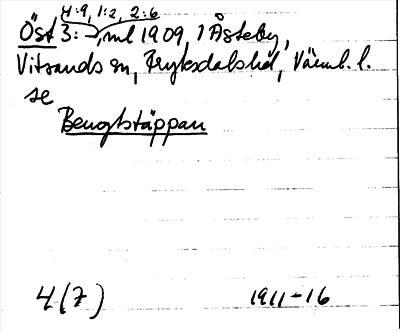 4:9, 1:2, 2:6
Öst 3:-, ml 1909, 1 Åsteby,
Vitsands sn, Fryksdals hd, Värml. l.
se
Bengtstäppan
4(7) 1911-16